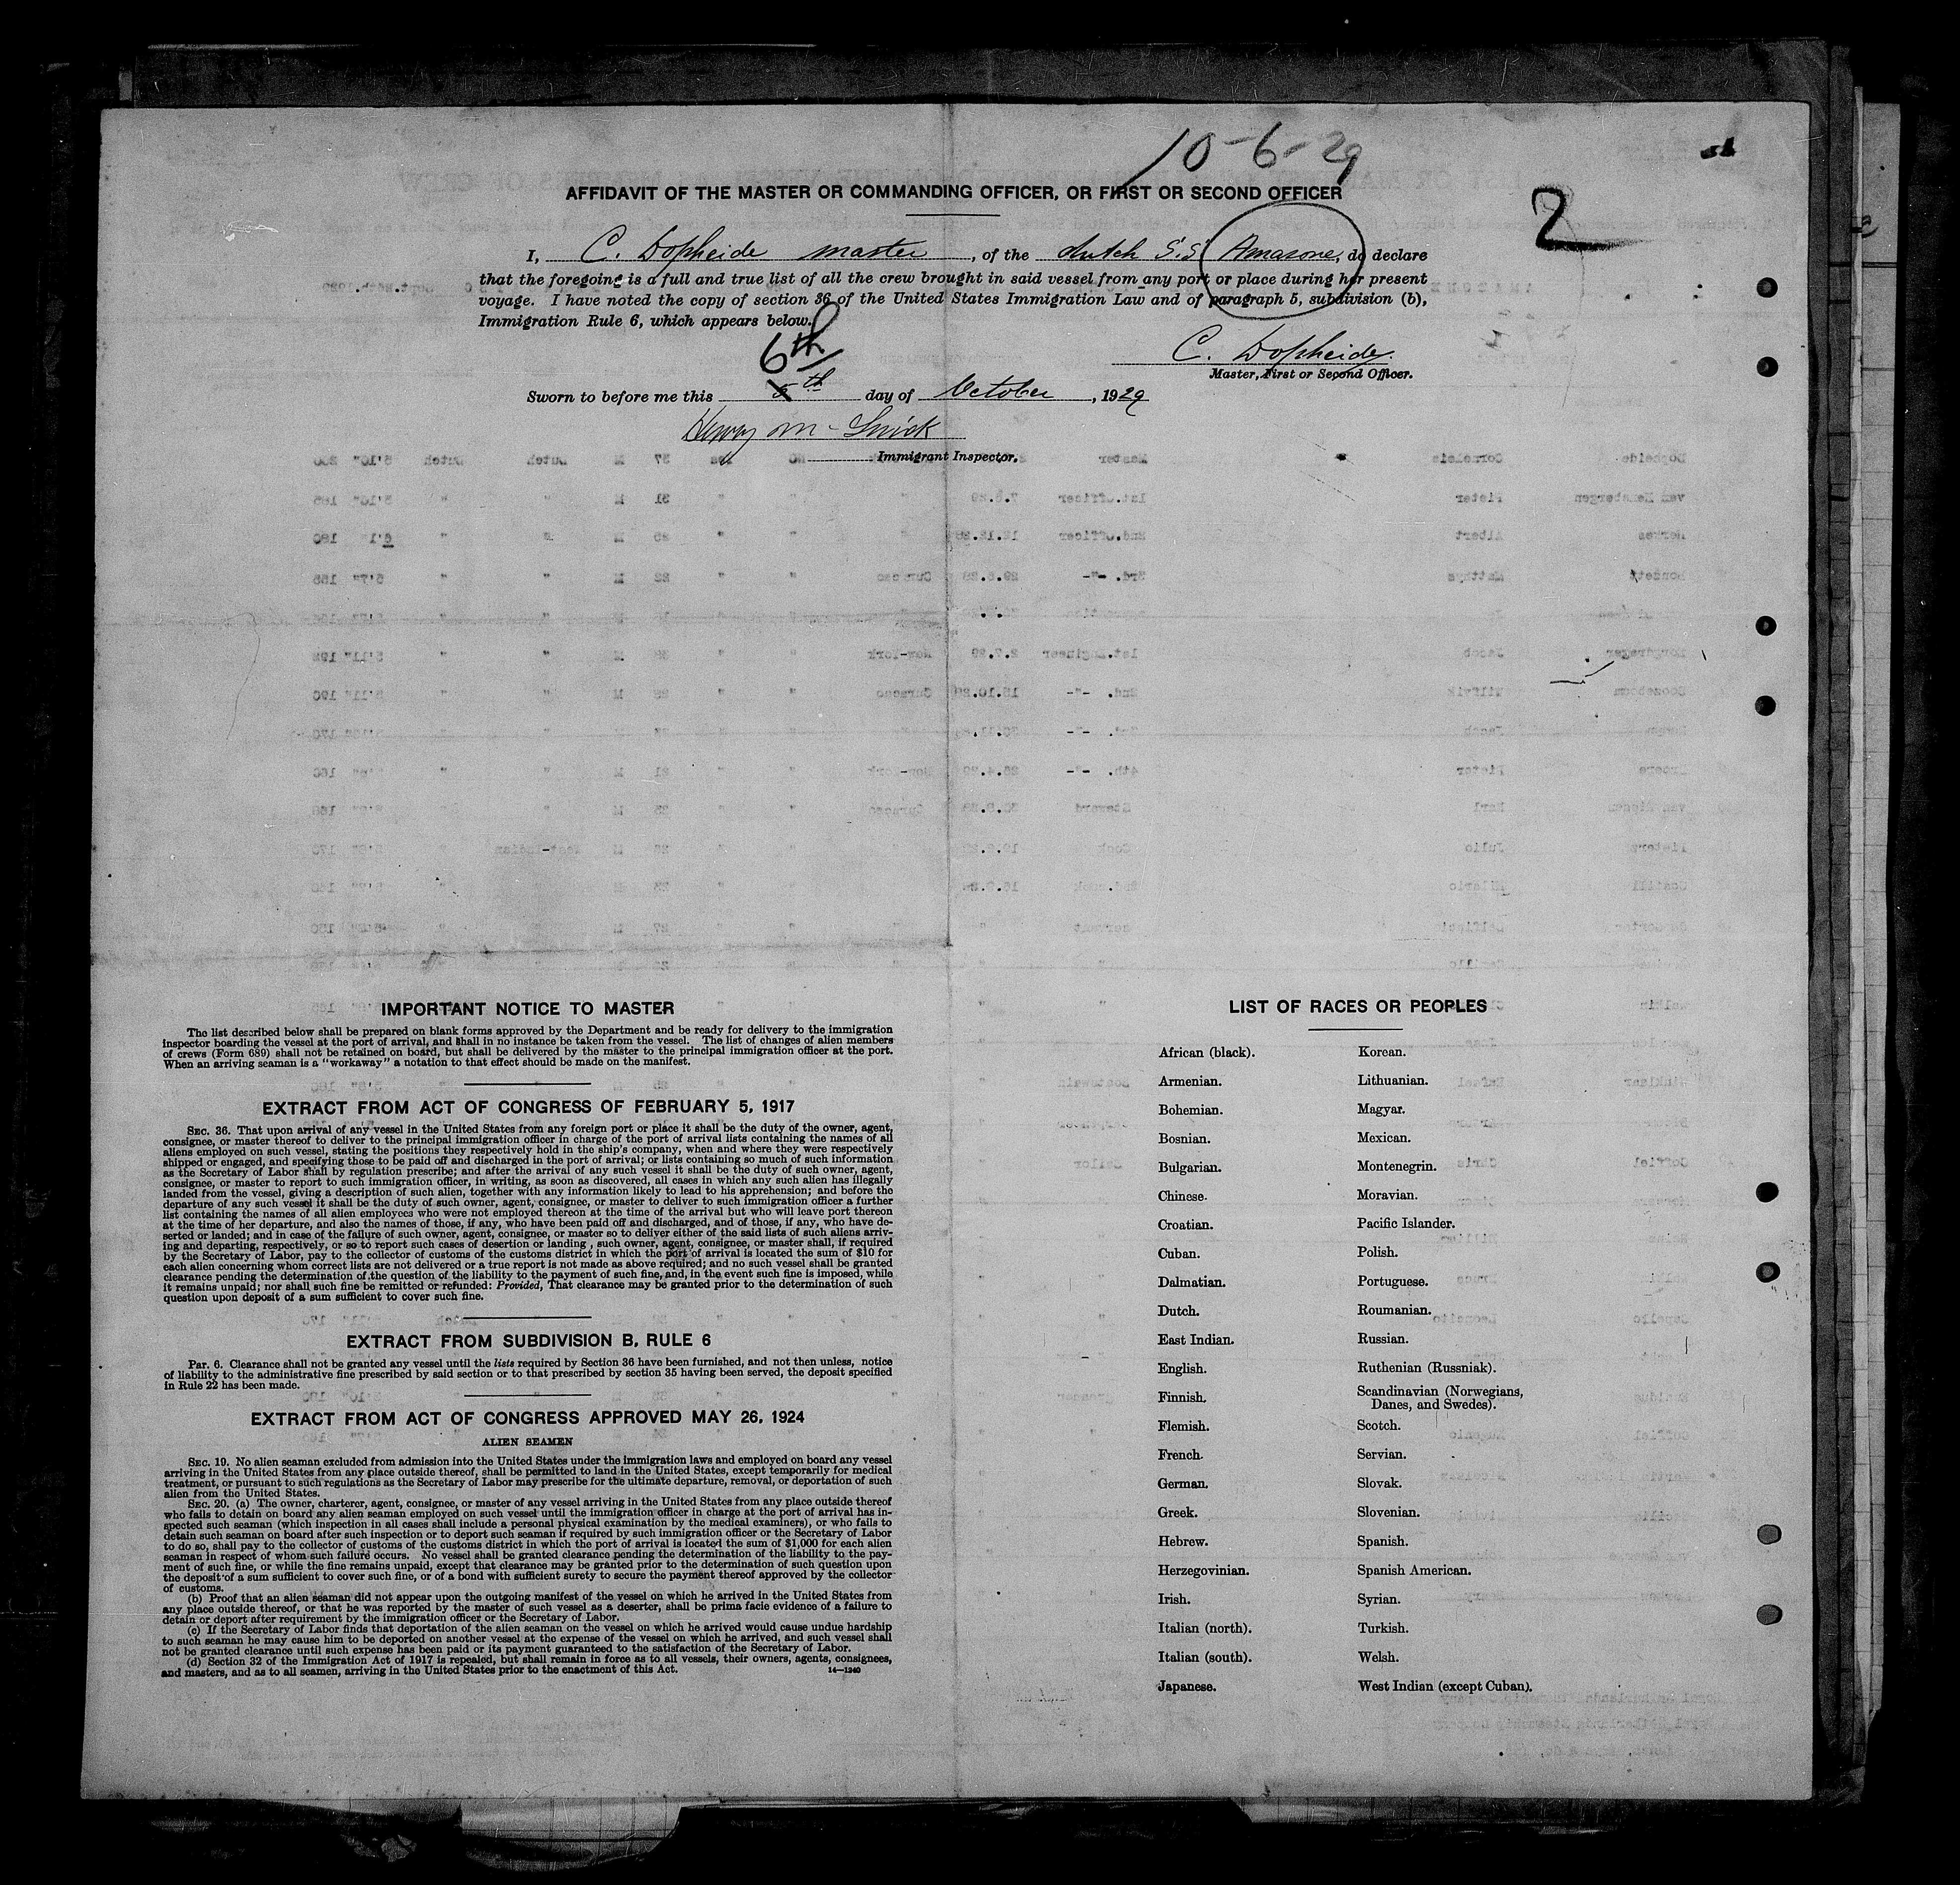 10-6-29
2
AFFIDAVIT OF THE MASTER OR COMMANDING OFFICER, OR FIRST OR SECOND OFFICER
I, C. Dopheide master, of the dutch S.S. Amasone, do declare
that the foregoing is a full and true list of all the crew brought in said vessel from any port or place during her present
voyage. I have noted the copy of section 36 of the United States Immigration Law and of paragraph 5, subdivision (b),
Immigration Rule 6, which appears below.
C. Dopheide.
Master, First or Second Officer.
6th
Sworn to before me this 5th day of October, 1929
Henry M
Immigrant Inspector.
IMPORTANT NOTICE TO MASTER
The list described below shall be prepared on blank forms approved by the Department and be ready for delivery to the immigration
inspector boarding the vessel at the port of arrival, and shall in no instance be taken from the vessel. The list of changes of alien members
of crews (Form 689) shall not be retained on board, but shall be delivered by the master to the principal immigration officer at the port.
When an arriving seaman is a "workaway" a notation to that effect should be made on the manifest.
EXTRACT FROM ACT OF CONGRESS OF FEBRUARY 5, 1917
SEC. 36. That upon arrival of any vessel in the United States from any foreign port or place it shall be the duty of the owner, agent,
consignee, or master thereof to deliver to the principal immigration officer in charge of the port of arrival lists containing the names of all
aliens employed on such vessel, stating the positions they respectively hold in the ship's company, when and where they were respectively
shipped or engaged, and specifying those to be paid off and discharged in the port of arrival; or lists containing so much of such information
as the Secretary of Labor shall by regulation prescribe; and after the arrival of any such vessel it shall be the duty of such owner, agent,
consignee, or master to report to such immigration officer, in writing, as soon as discovered, all cases in which any such alien has illegally
landed from the vessel, giving a description of such alien, together with any information likely to lead to his apprehension; and before the
departure of any such vessel it shall be the duty of such owner, agent, consignee, or master to deliver to such immigration officer a further
list containing the names of all alien employees who were not employed thereon at the time of the arrival but who will leave port thereon
at the time of her departure, and also the names of those, if any, who have been paid off and discharged, and of those, if any, who have de-
serted or landed; and in case of the failure of such owner, agent, consignee, or master so to deliver either of the said lists of such aliens arriv-
ing and departing, respectively, or so to report such cases of desertion or landing, such owner, agent, consignee, or master shall, if required
by the Secretary of Labor, pay to the collector of customs of the customs district in which the port of arrival is located the sum of $10 for
each alien concerning whom correct lists are not delivered or a true report is not made as above required; and no such vessel shall be granted
clearance pending the determination of the question of the liability to the payment of such fine, and, in the event such fine is imposed, while
it remains unpaid; nor shall such fine be remitted or refunded: Provided, That clearance may be granted prior to the determination of such
question upon deposit of a sum sufficient to cover such fine.
EXTRACT FROM SUBDIVISION B, RULE 6
Par. 6. Clearance shall not be granted any vessel until the lists required by Section 36 have been furnished, and not then unless, notice
of liability to the administrative fine prescribed by said section or to that prescribed by section 35 having been served, the deposit specified
in Rule 22 has been made.
EXTRACT FROM ACT OF CONGRESS APPROVED MAY 26, 1924
ALIEN SEAMEN
SEC. 19. No alien seaman excluded from admission into the United States under the immigration laws and employed on board any vessel
arriving in the United States from any place outside thereof, shall be permitted to land in the United States, except temporarily for medical
treatment, or pursuant to such regulations as the Secretary of Labor may prescribe for the ultimate departure, removal, or deportation of such
alien from the United States.
SEC. 20. (a) The owner, charterer, agent, consignee, or master of any vessel arriving in the United States from any place outside thereof
who fails to detain on board any alien seaman employed on such vessel until the immigration officer in charge at the port of arrival has in-
spected such seaman (which inspection in all cases shall include a personal physical examination by the medical examiners), or who fails to
detain such seaman on board after such inspection or to deport such seaman if required by such immigration officer or the Secretary of Labor
to do so, shall pay to the collector of customs of the customs district in which the port of arrival is located the sum of $1,000 for each alien
seaman in respect of whom such failure occurs. No vessel shall be granted clearance pending the determination of the liability to the pay-
ment of such fine, or while the fine remains unpaid, except that clearance may be granted prior to the determination of such question upon
the deposit of a sum sufficient to cover such fine, or of a bond with sufficient surety to secure the payment thereof approved by the collector
of customs.
(b) Proof that an alien seaman did not appear upon the outgoing manifest of the vessel on which he arrived in the United States from
any place outside thereof, or that he was reported by the master of such vessel as a deserter, shall be prima facie evidence of a failure to
detain or deport after requirement by the immigration officer or the Secretary of Labor.
(c) If the Secretary of Labor finds that deportation of the alien seaman on the vessel on which he arrived would cause undue hardship
to such seaman he may cause him to be deported on another vessel at the expense of the vessel on which he arrived, and such vessel shall
not be granted clearance until such expense has been paid or its payment guaranteed to the satisfaction of the Secretary of Labor.
(d) Section 32 of the Immigration Act of 1917 is repealed, but shall remain in force as to all vessels, their owners, agents, consignees,
and masters, and as to all seamen, arriving in the United States prior to the enactment of this Act. 14—1240
LIST OF RACES OR PEOPLES
African (black).
Armenian.
Bohemian.
Bosnian.
Bulgarian.
Chinese.
Croatian.
Cuban.
Dalmatian.
Dutch.
East Indian.
English.
Finnish.
Flemish.
French.
German.
Greek.
Hebrew.
Herzegovinian.
Irish.
Italian (north).
Italian (south).
Japanese.
Korean.
Lithuanian.
Magyar.
Mexican.
Montenegrin.
Moravian.
Pacific Islander.
Polish.
Portuguese.
Roumanian.
Russian.
Ruthenian (Russniak).
Scandinavian (Norwegians,
Danes, and Swedes).
Scotch.
Servian.
Slovak.
Slovenian.
Spanish.
Spanish American.
Syrian.
Turkish.
Welsh.
West Indian (except Cuban).